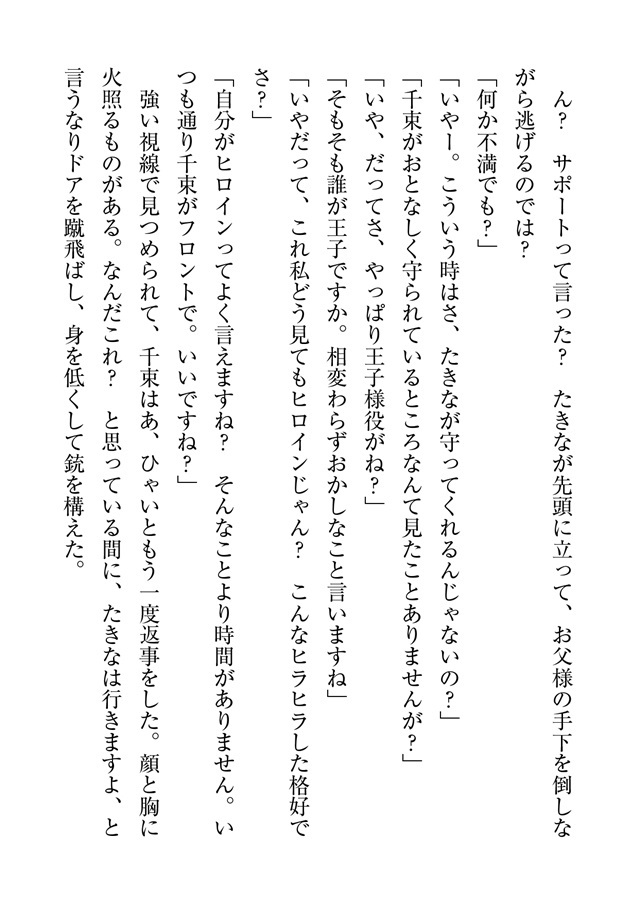 ん？　サポートって言った？　たきなが先頭に立って、お父様の手下を倒しな
がら逃げるのでは？
「何か不満でも？」
「いやー。こういう時はさ、たきなが守ってくれるんじゃないの？」
「千束がおとなしく守られているところなんて見たことありませんが？」
「いや、だってさ、やっぱり王子様役がね？」
「そもそも誰が王子ですか。相変わらずおかしなこと言いますね」
「いやだって、これ私どう見てもヒロインじゃん？　こんなヒラヒラした格好で
さ？」
「自分がヒロインってよく言えますね？　そんなことより時間がありません。い
つも通り千束がフロントで。いいですね？」
　強い視線で見つめられて、千束はあ、ひゃいともう一度返事をした。顔と胸に
火照るものがある。なんだこれ？　と思っている間に、たきなは行きますよ、と
言うなりドアを蹴飛ばし、身を低くして銃を構えた。